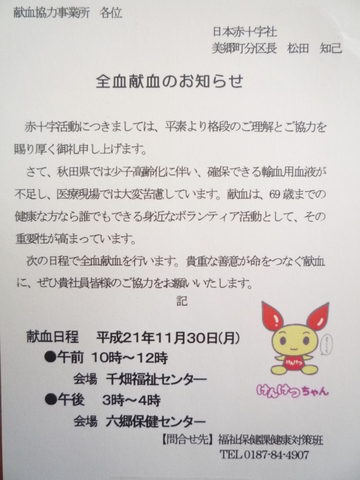 献血協力事業所 各位
日本赤十字社
美郷町分区長 松田 知己
全血献血のお知らせ
赤十字活動につきましては、平素より格段のご理解とご協力を
賜り厚く御礼申し上げます。
さて、秋田県では少子高齢化に伴い、確保できる輸血用血液が
不足し、医療現場では大変苦慮しています。献血は、69歳までの
健康な方なら誰でもできる身近なボランティア活動として、その
重要性が高まっています。
次の日程で全血献血を行います。貴重な善意が命をつなぐ献血
に、ぜひ貴社員皆様のご協力をお願いいたします。
記
献血日程 平成21年11月30日(月)
●午前 10時〜12時
会場 千畑福祉センター
●午後 3時〜4時
会場 六郷保健センター
けんけつ
けんけつちゃん
【問合せ先】福祉保健課健康対策班
TEL 0187-84-4907